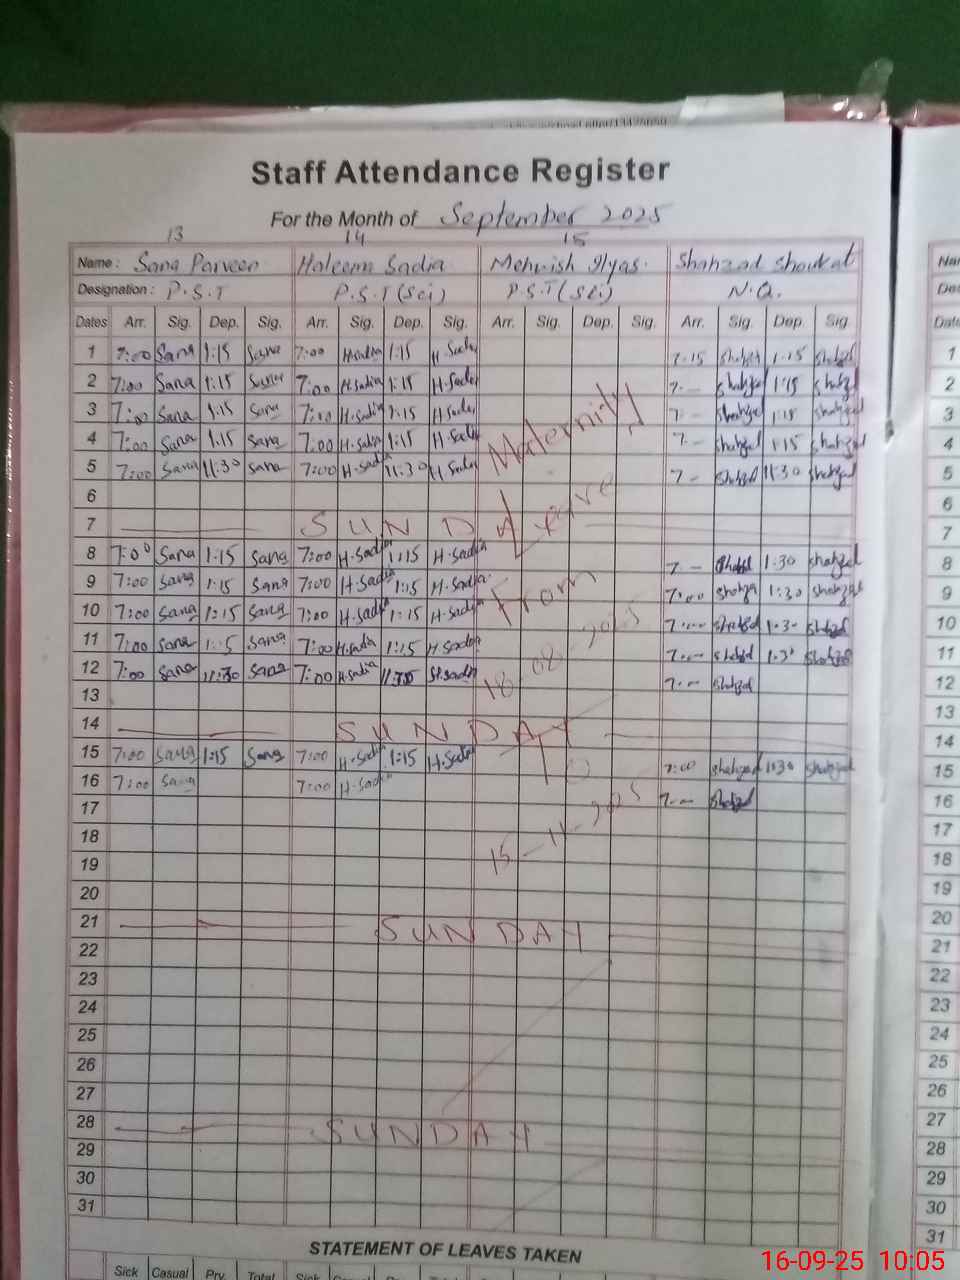 Staff Attendance Register
For the Month of September 2025
13 14 15
Name: Sana Parveen Haleema Sadia Mehwish Ilyas. Shahzad Shoukat
Designation: P.S.T P.S.T (Sci) P.S.T (Sci) N.Q.
Dates Arr. Sig. Dep. Sig. Arr. Sig. Dep. Sig. Arr. Sig. Dep. Sig. Arr. Sig. Dep. Sig.
1 7:00 Sana 1:15 Sana 7:00 H.Sadia 1:15 H.Sadia 7:15 Shahzad 1:15 Shahzad
2 7:00 Sana 1:15 Sana 7:00 H.Sadia 1:15 H.Sadia 7 — Shahzad 1:15 Shahzad
3 7:00 Sana 1:15 Sana 7:00 H.Sadia 1:15 H.Sadia 7 — Shahzad 1:15 Shahzad
4 7:00 Sana 1:15 Sana 7:00 H.Sadia 1:15 H.Sadia 7 — Shahzad 1:15 Shahzad
5 7:00 Sana 11:30 Sana 7:00 H.Sadia 11:30 H.Sadia 7 — Shahzad 11:30 Shahzad
6
7 SUNDAY
8 7:00 Sana 1:15 Sana 7:00 H.Sadia 1:15 H.Sadia 7 — Shahzad 1:30 Shahzad
9 7:00 Sana 1:15 Sana 7:00 H.Sadia 1:15 H.Sadia 7:00 Shahzad 1:30 Shahzad
10 7:00 Sana 1:15 Sana 7:00 H.Sadia 1:15 H.Sadia 7:— Shahzad 1:30 Shahzad
11 7:00 Sana 1:15 Sana 7:00 H.Sadia 1:15 H.Sadia 7:— Shahzad 1:30 Shahzad
12 7:00 Sana 11:30 Sana 7:00 H.Sadia 11:30 H.Sadia 7:— Shahzad
13
14 SUNDAY
15 7:00 Sana 1:15 Sana 7:00 H.Sadia 1:15 H.Sadia 7:00 Shahzad 1:30 Shahzad
16 7:00 Sana 7:00 H.Sadia 7:— Shahzad
17
18
19
20
21 SUNDAY
22
23
24
25
26
27
28 SUNDAY
29
30
31
Maternity
Leave
From
18-08-2025
To
15-11-2025
STATEMENT OF LEAVES TAKEN
Sick Casual Prv. Total Sick
Dates
1
2
3
4
5
6
7
8
9
10
11
12
13
14
15
16
17
18
19
20
21
22
23
24
25
26
27
28
29
30
31
16-09-25 10:05